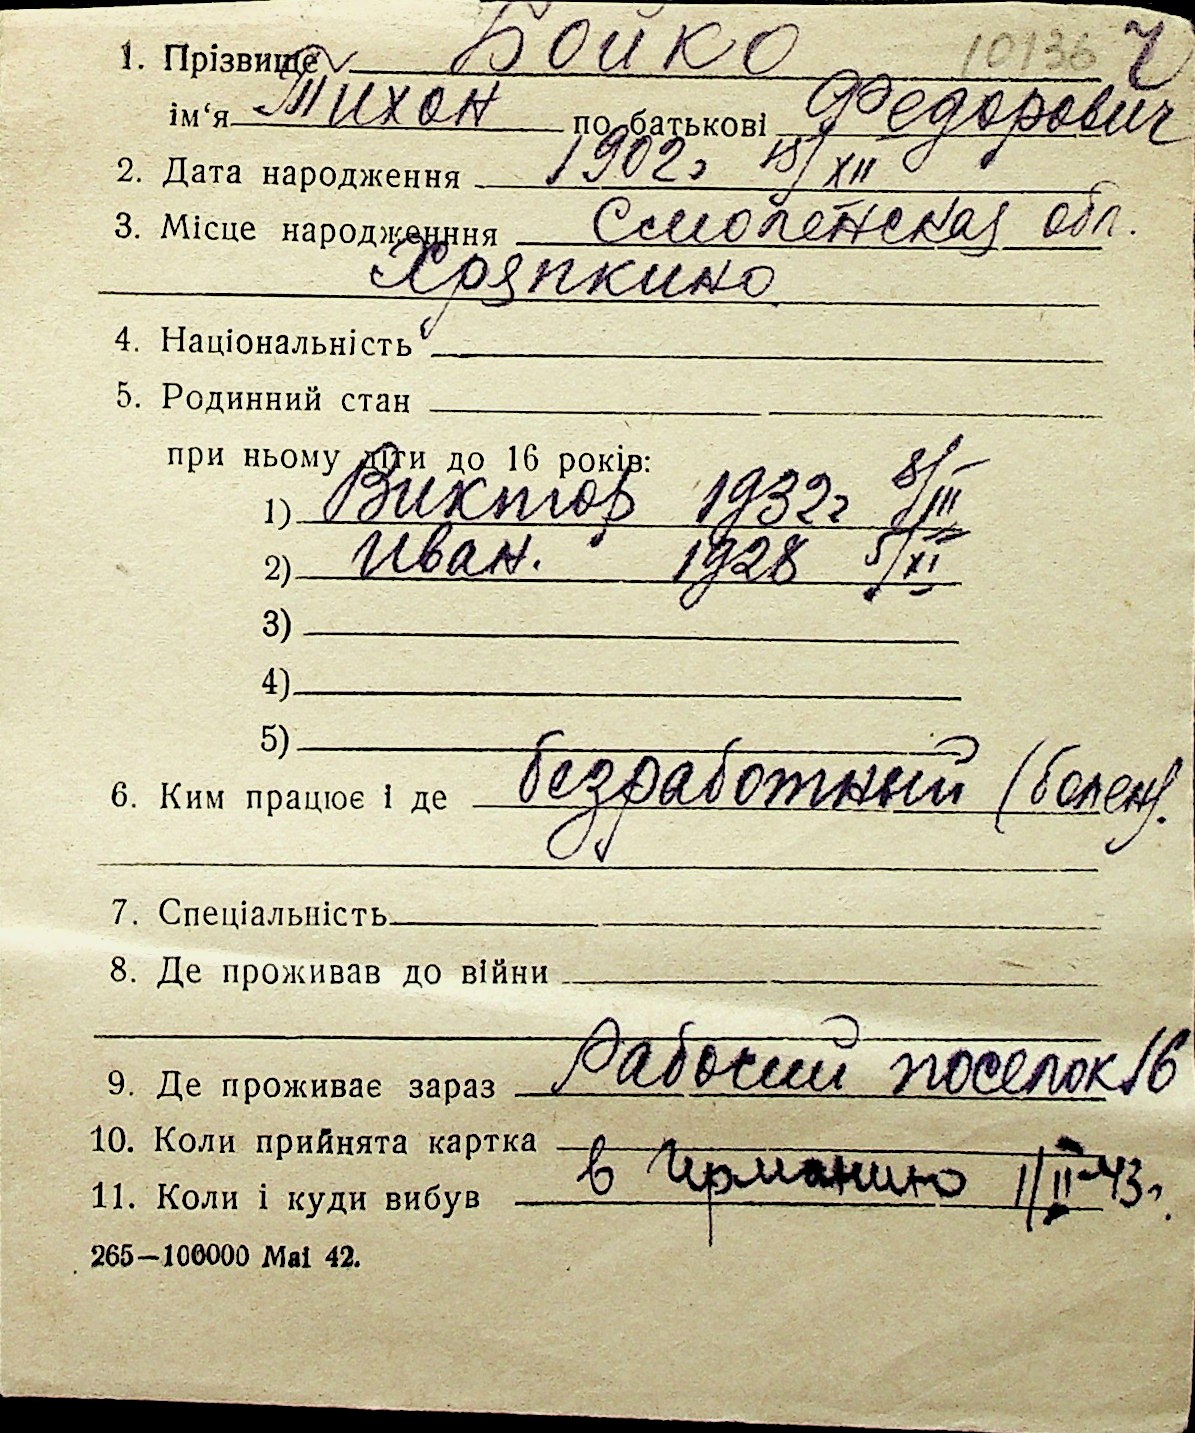 1. Прізвище Бойко 10136 Ч
ім‘я Тихон по батькові Федорович
2. Дата народження 1902г 15/XII
3. Місце народженння Смоленская обл.
Хряпкино
4. Національність
5. Родинний стан
при ньому діти до 16 років:
1) Виктор 1932г 8/III
2) Иван. 1928 5/XI
3)
4)
5)
6. Ким працює і де безработный (болен).
7. Спеціальність
8. Де проживав до війни
9. Де проживає зараз Рабочий поселок 16
10. Коли прийнята картка
11. Коли і куди вибув в Германию 1/II-43г.
265—100000 Mai 42.